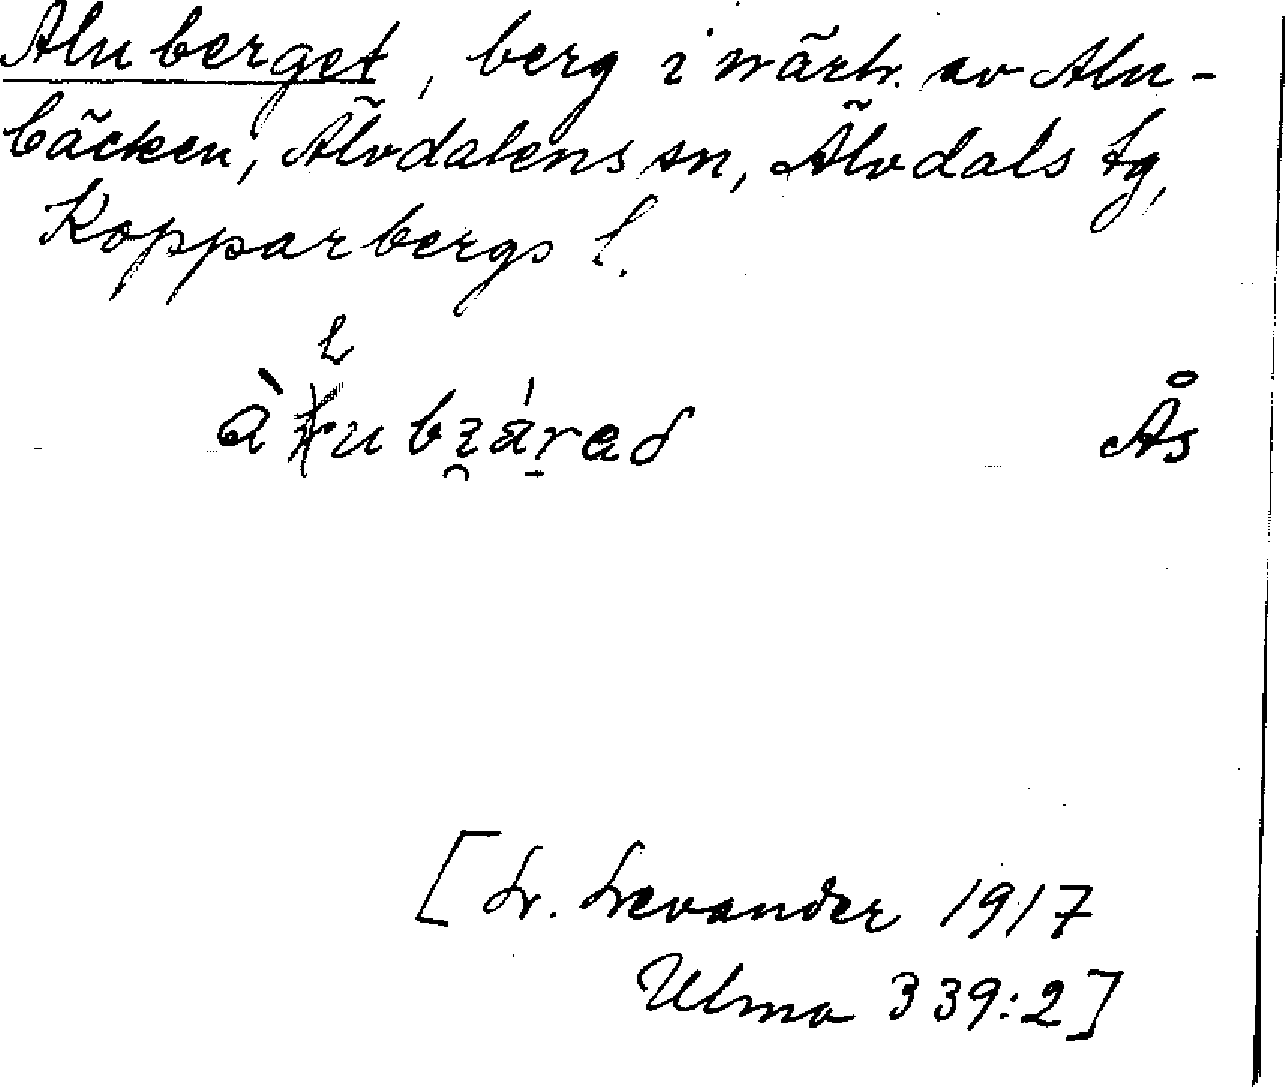 Aluberget, berg i närh. av Alu-
bäcken, Älvdalens sn, Älvdals tg,
Kopparbergs l.
l
Ås
[L. Levander 1917
Ulma 339:2]